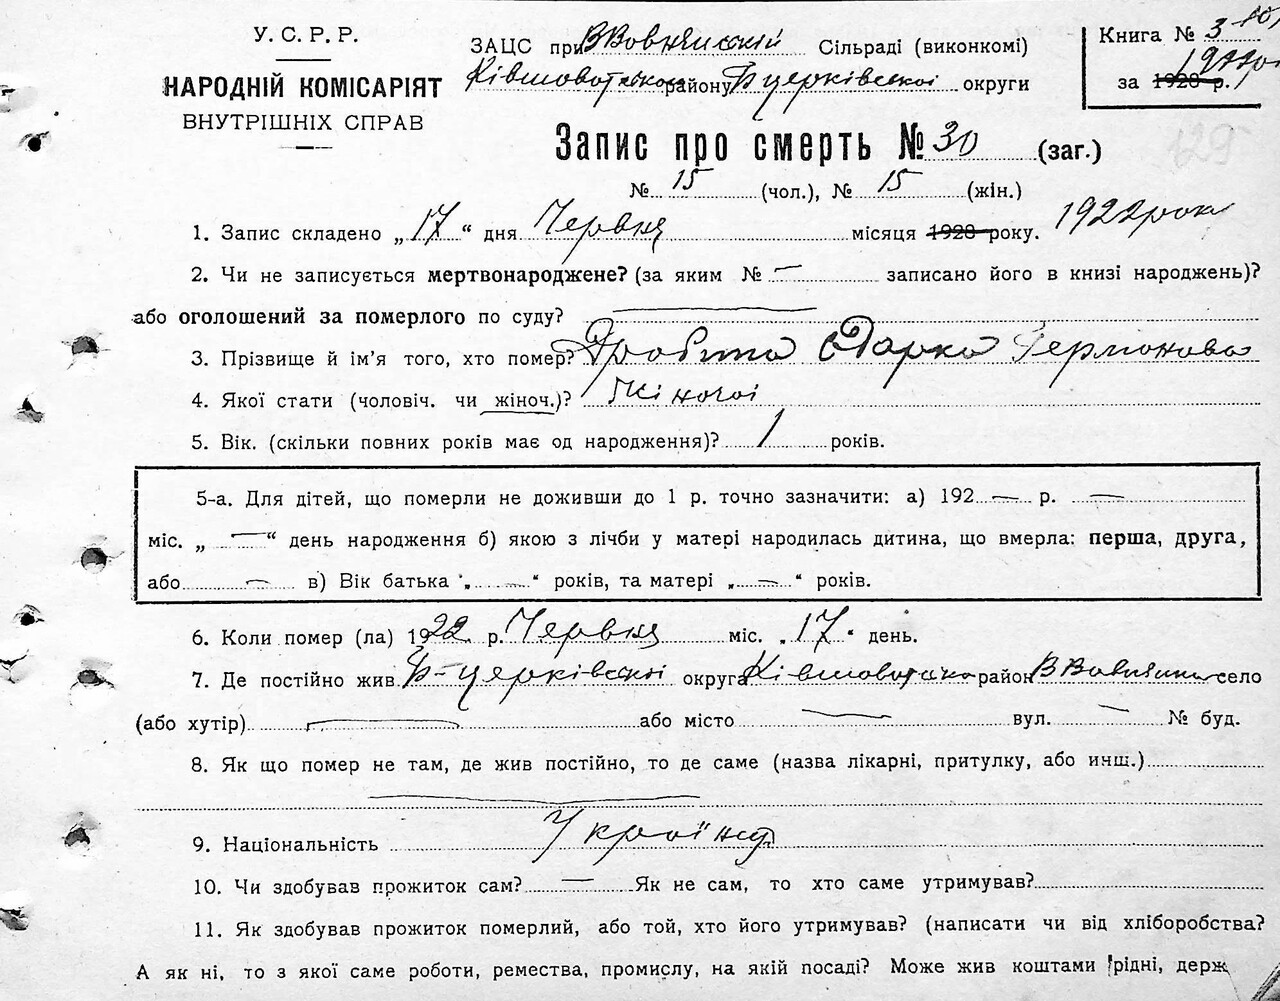 У. С. Р. Р.
НАРОДНІЙ КОМІСАРІЯТ
ВНУТРІШНІХ СПРАВ
ЗАЦС при Сільраді (виконкомі)
району Б церківської округи
Книга № 3
за 1928 р. 1922
Запис про смерть № 30 (заг.)
129
№ 15 (чол.), № 15 (жін.)
1. Запис складено „17“ дня Червня місяця 1928 року. 1922 рок
2. Чи не записується мертвонароджене? (за яким № — записано його в книзі народжень)?
або оголошений за померлого по суду? —
3. Прізвище й ім'я того, хто помер? Дарка
4. Якої стати (чоловіч. чи жіноч.)? Жіночоі
5. Вік. (скільки повних років має од народження)? 1 років.
5-а. Для дітей, що померли не доживши до 1 р. точно зазначити: а) 192 — р. —
міс. „ — “ день народження б) якою з лічби у матері народилась дитина, що вмерла: перша, друга,
або — в) Вік батька „ — “ років, та матері „ — “ років.
6. Коли помер (ла) 1922 р. Червня міс. „17“ день.
7. Де постійно жив Б-церківської округа район село
(або хутір) — або місто — вул. — № буд.
8. Як що помер не там, де жив постійно, то де саме (назва лікарні, притулку, або инш.)
—
9. Національність
10. Чи здобував прожиток сам? — Як не сам, то хто саме утримував?
11. Як здобував прожиток померлий, або той, хто його утримував? (написати чи від хліборобства?
А як ні, то з якої саме роботи, ремества, промислу, на якій посаді? Може жив коштами рідні, держ